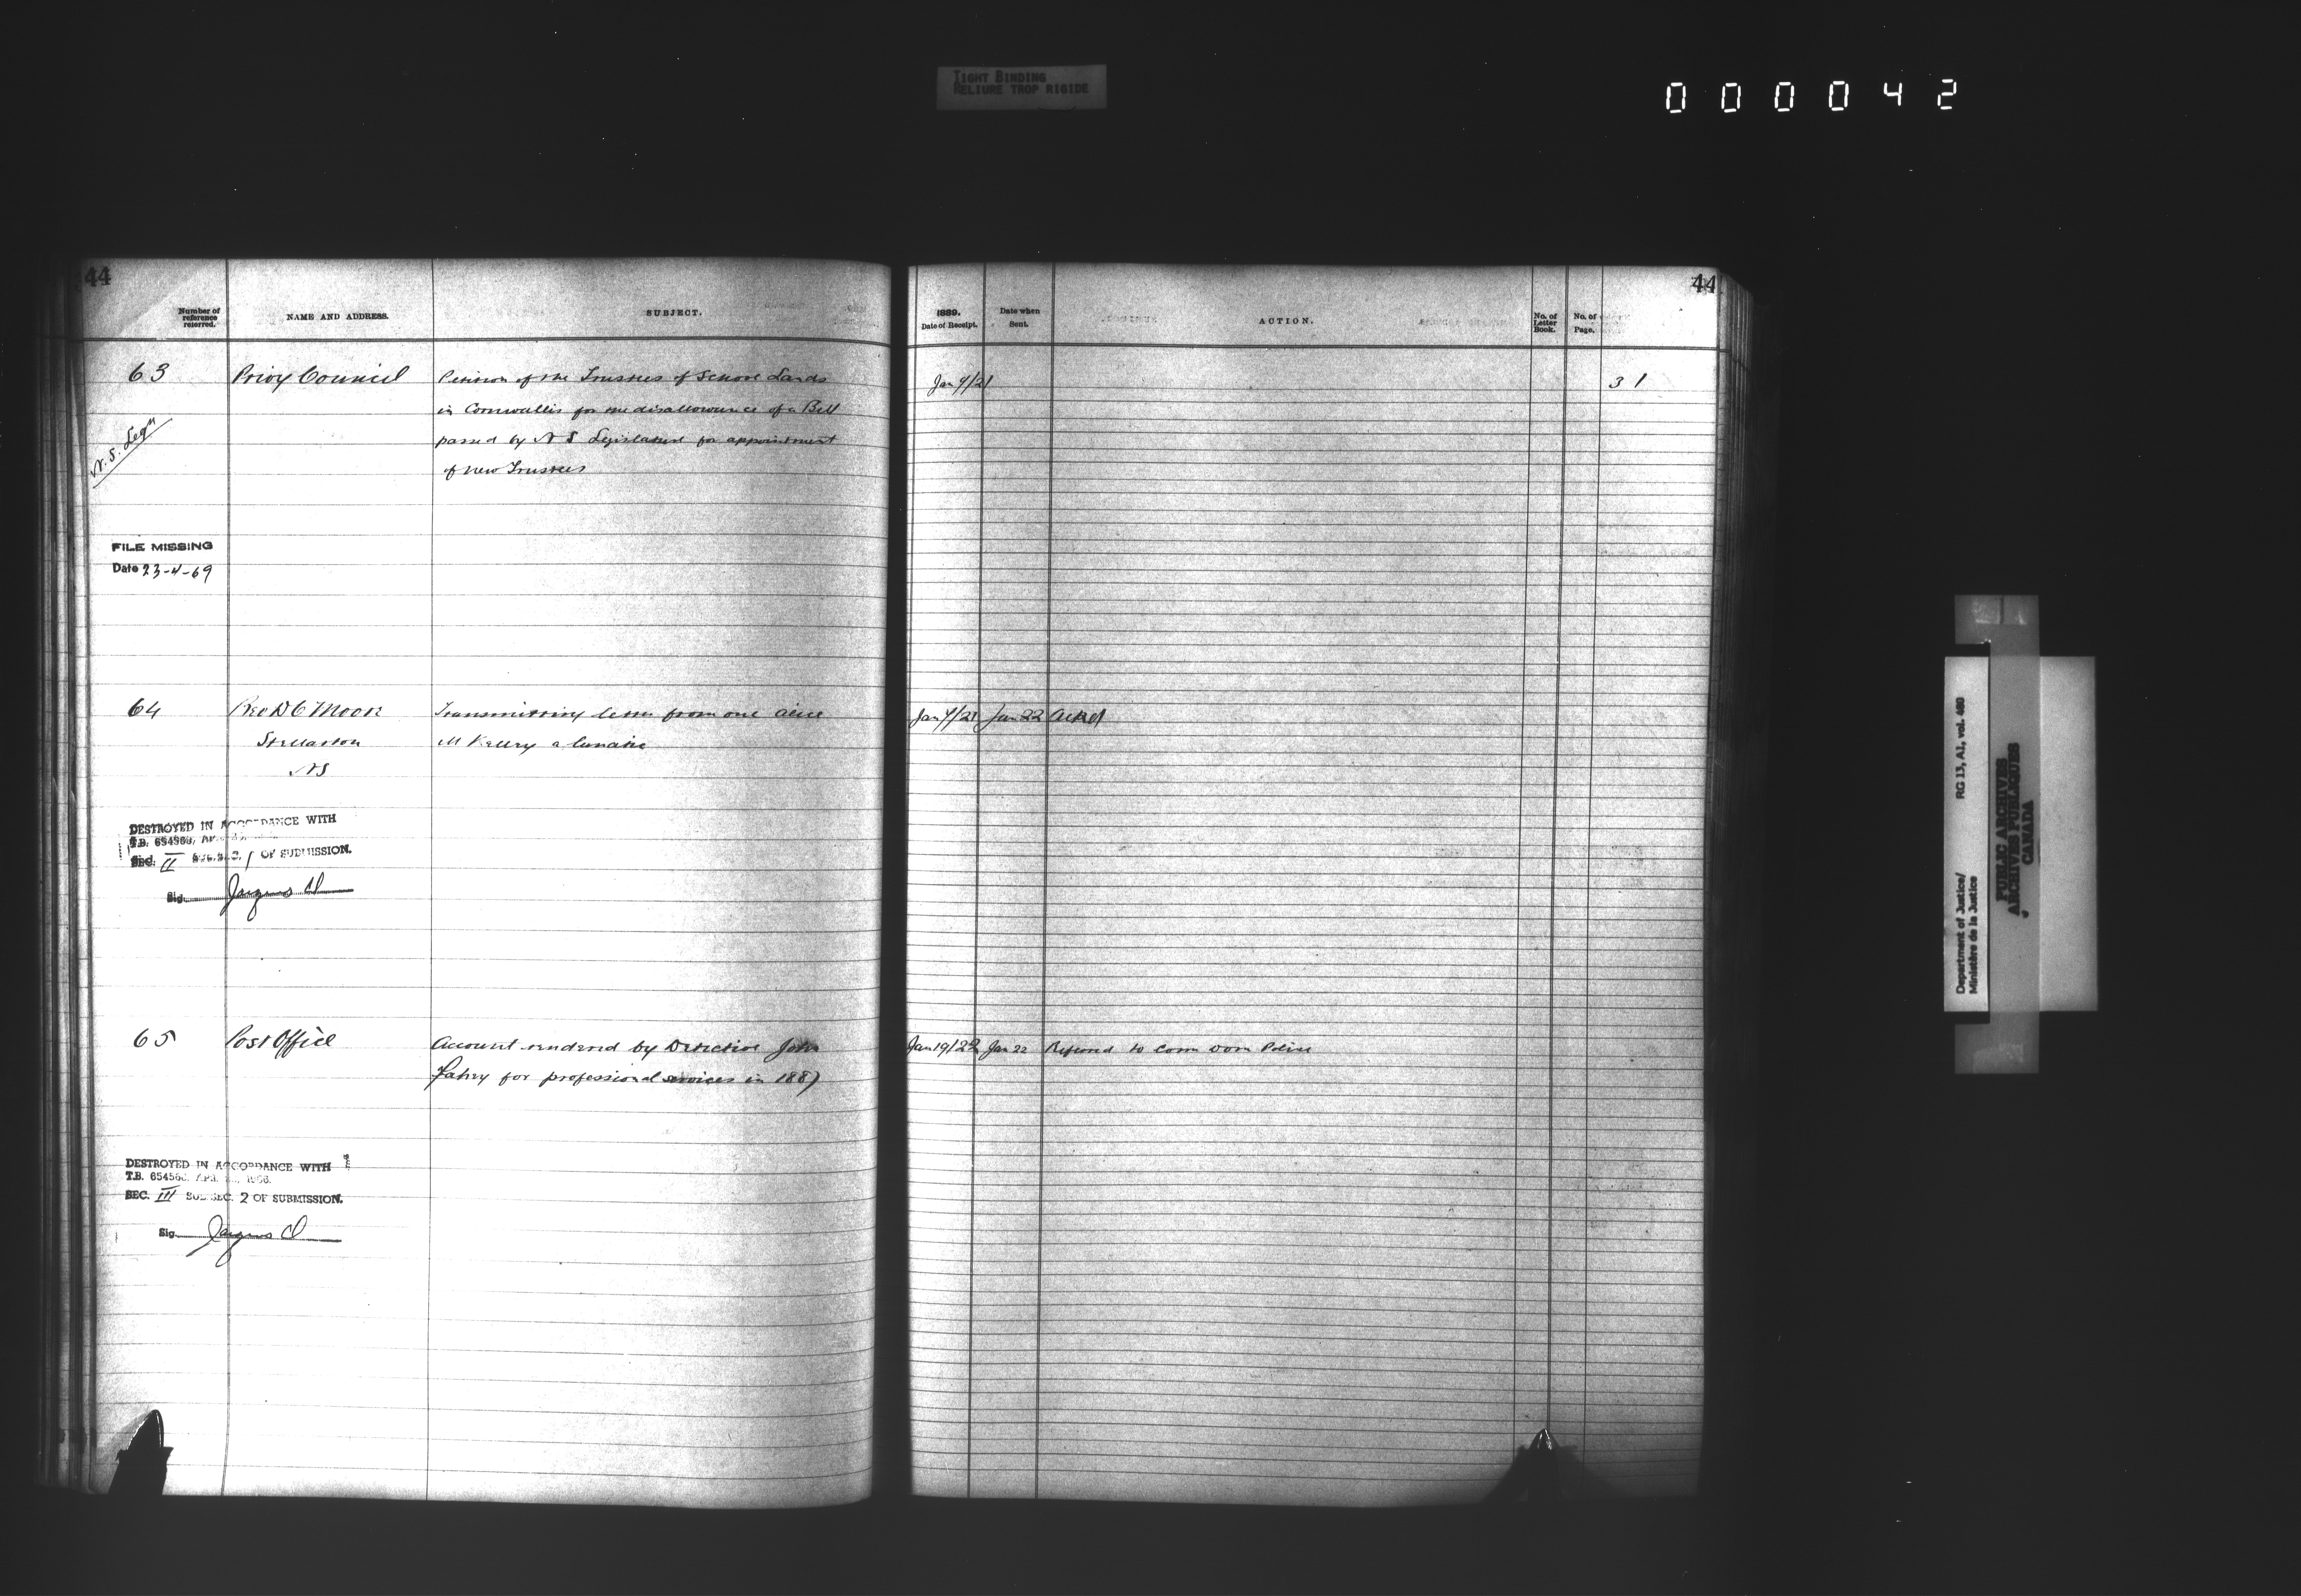 TIGHT BINDING
RELIURE TROP RIGIDE
000042
44
Number of reference referred.
NAME AND ADDRESS.
SUBJECT.
63
Privy Council
Petition of the Trustees of School Lands
in Cornwallis for the disallowance of a Bill
passed by N S Legislature for appointment
of new Trustees
N.S. Legn
FILE MISSING
Date 23-4-69
64
Rev D C Moore
Stellarton
NS
Transmitting letter from one
McKelvy a lunatic
DESTROYED IN ACCORDANCE WITH
T.B. 654560,
Sec. II SUB.SEC. 1 OF SUBMISSION.
Sig.
65
Post Office
Account rendered by Detective John
Fahey for professional services in 1887
DESTROYED IN ACCORDANCE WITH
T.B. 654560,
SEC. III SUB.SEC. 2 OF SUBMISSION.
Sig.
44
1889.
Date of Receipt.
Date when Sent.
ACTION.
No. of Letter Book.
No. of Page.
Jan 9/21
31
Jan 9/21 Jan 22 Ackd
Jan 19/22 Jan 22 Referred to Com Dom Police
Department of Justice/ RG 13, A1, vol. 480
Ministère de la Justice
PUBLIC ARCHIVES
ARCHIVES PUBLIQUES
CANADA